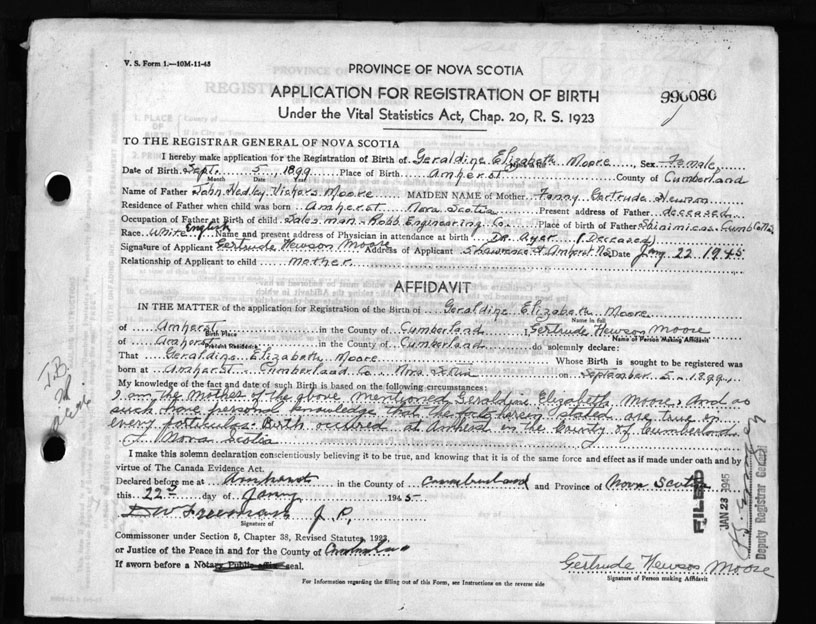 V. S. Form 1.—10M-11-43
PROVINCE OF NOVA SCOTIA
APPLICATION FOR REGISTRATION OF BIRTH
990080
Under the Vital Statistics Act, Chap. 20, R. S. 1923
TO THE REGISTRAR GENERAL OF NOVA SCOTIA
I hereby make application for the Registration of Birth of Geraldine Elizabeth Moore, Sex Female
Date of Birth Sept. 5, 1899 Place of Birth Amherst County of Cumberland
Month Date Year
Name of Father John Hedley Vickers Moore MAIDEN NAME of Mother Fanny Gertrude Hewson
Residence of Father when child was born Amherst Nova Scotia Present address of Father deceased
Occupation of Father at Birth of child Salesman - Robb Engineering Co. Place of birth of Father Shinimicas Cumb Co Ns.
Race White English Name and present address of Physician in attendance at birth Dr. Ayer (Deceased)
Signature of Applicant Gertrude Hewson Moore Address of Applicant Lawrence St Amherst Ns Date Jany 22 1945
Relationship of Applicant to child mother
AFFIDAVIT
IN THE MATTER of the application for Registration of the Birth of Geraldine Elizabeth Moore
Name in full
of Amherst in the County of Cumberland I, Gertrude Hewson Moore
Birth Place Name of Person Making Affidavit
of Amherst in the County of Cumberland do solemnly declare:
Present Residence
That Geraldine Elizabeth Moore Whose Birth is sought to be registered was
born at Amherst Cumberland Co Nova Scotia on September 5 - 1899
My knowledge of the fact and date of such Birth is based on the following circumstances:
I am the Mother of the above mentioned Geraldine Elizabeth Moore, and as
such have personal knowledge that the facts herein stated are true in
every particular. Birth occured at Amherst in the County of Cumberland
Nova Scotia
I make this solemn declaration conscientiously believing it to be true, and knowing that it is of the same force and effect as if made under oath and by
virtue of The Canada Evidence Act.
Declared before me at Amherst in the County of Cumberland and Province of Nova Scotia
this 22 day of Jany 1945
D W Freeman J. P.
Signature of
Commissioner under Section 5, Chapter 38, Revised Statutes, 1923,
or Justice of the Peace in and for the County of Cumberland
If sworn before a Notary Public affix seal.
Gertrude Hewson Moore
Signature of Person making Affidavit
For Information regarding the filling out of this Form, see Instructions on the reverse side
FILED
JAN 23 1945
Deputy Registrar General